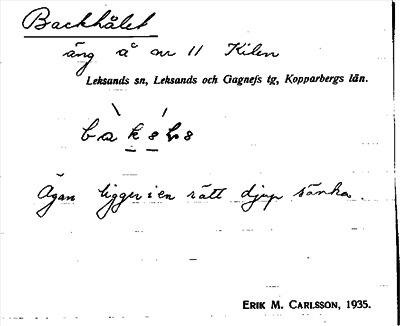 Backhålet
äng å nr 11 Kilen
Leksands sn, Leksands och Gagnefs tg, Kopparbergs län.
ligger i en rätt djup sänka.
ERIK M. CARLSSON, 1935.